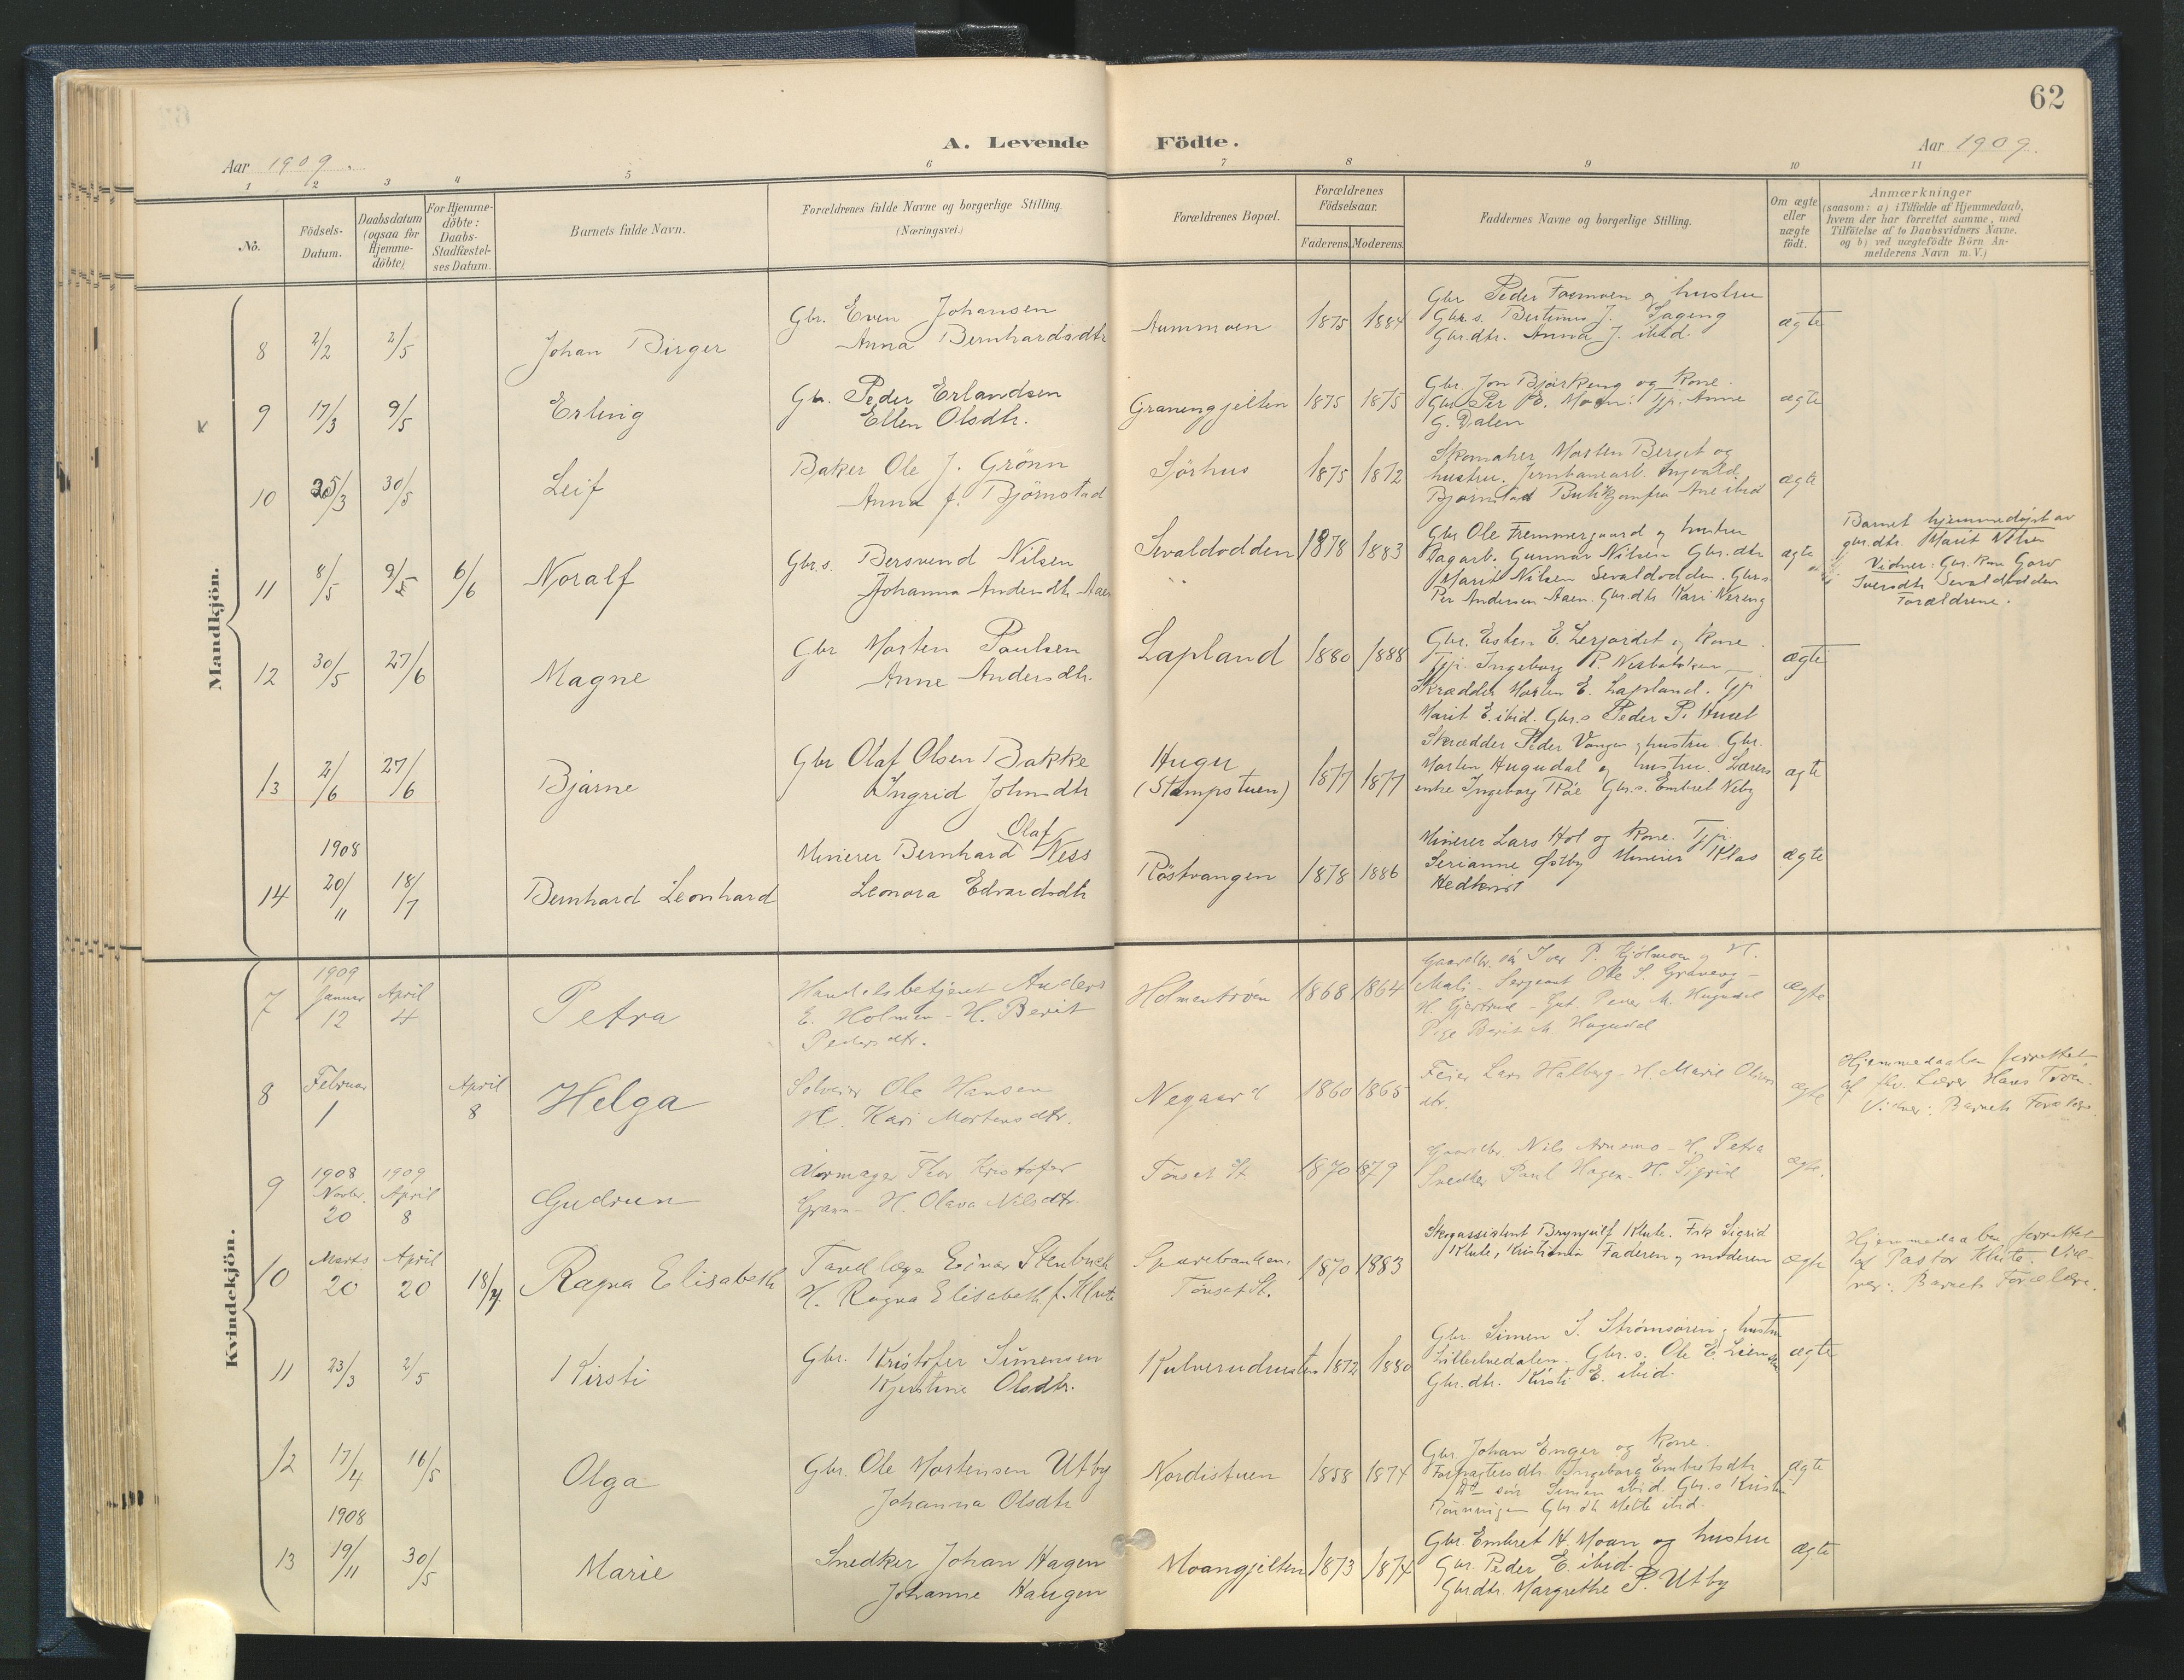 62
A. Levende Födte.
Aar 1909.
Aar 1909.
1 2 3 4 5 6 7 8 9 10 11
No.
Födsels-
Datum.
Daabsdatum
(ogsaa for
Hjemme-
döbte)
For Hjemme-
döbte:
Daabs-
Stadfæstel-
ses Datum.
Barnets fulde Navn.
Forældrenes fulde Navne og borgerlige Stilling.
(Næringsvei.)
Forældrenes Bopæl.
Forældrenes
Födselsaar.
Faderens. Moderens.
Faddernes Navne og borgerlige Stilling.
Om ægte
eller
uægte
födt.
Anmærkninger
(saasom: a) i Tilfælde af Hjemmedaab,
hvem der har forrettet samme, med
Tilföielse af to Daabsvidners Navne.
og b) ved uægtefödte Börn An-
melderens Navn m.V.)
Mandkjön.
8 2/2 2/5 Johan Birger
Gbr. Even Johansen
Anna Bernhardsdtr
Aummoen 1875 1884
Gbr Peder Formoen og hustru
Gbr.s. Bertinus J. Sageng
Gbr.dtr. Anna J. ibid.
ægte
9 17/3 9/5 Erling
Gbr. Peder Erlandsen
Ellen Olsdtr.
Granenggjelten 1875 1875
Gbr. Jon Bjørkeng og kone.
Gbr Per E. Moen. Tjp. Anne
G. Dalen
ægte
10 25/3 30/5 Leif
Baker Ole J. Grönn
Anna f. Bjørnstad
Sørhus 1875 1872
Skomaker Morten Berget og
hustru. Jernbanearb. Ingvald
Bjørnstad Butikjomfru Ane ibid
ægte
11 8/5 9/5 6/6 Noralf
Gbr.s. Bersvend Nilsen
Johanna Andersdtr Aaen
Sevaldodden 1878 1883
Gbr Ole Fremmergaard og hustru
Dagarb. Gunnar Nilsen Gbr.dtr
Marit Nilsen Sevaldodden. Gbr.s
Per Andersen Aaen. Gbr.dtr Kari Nereng
ægte
Barnet hjemmedøpt av
gbr.dtr. Marit Nilsen
Vidner: Gbr. kone Goro
Iversdtr Sevaldodden
Forældrene.
12 30/5 27/6 Magne
Gbr Morten Paulsen
Anne Andersdtr.
Lapland 1880 1888
Gbr. Esten E. Lerjordet og kone.
Tjp. Ingeborg P.
Skrædder Morten E. Lapland. Tjp
Marit E. ibid. Gbr.s Peder P.
ægte
13 2/6 27/6 Bjarne
Gbr Olaf Olsen Bakke
Ingrid Johnsdtr
Hugu
(Stampstuen)
1877 1877
Skrædder Peder Vangen og hustru. Gbr.
Morten Hugudal og hustru. Lærers
enke Ingeborg Røe Gbr.s. Embret Neby
ægte
14 1908
20/11 18/7 Bernhard Leonhard
Minerer Bernhard Olaf Ness
Leonora Edvardsdtr
Röstvangen 1878 1886
Minerer Lars Hol og kone. Tjp.
Serianne Østby Minerer Klas
Hedkvist
ægte
Kvindekjön.
7 1909
Januar
12
April
4
Petra
Handelsbetjent Anders
E. Holmen - H. Berit
Pedersdtr.
Holmentrøen 1868 1864
Gaardbr. Iver P. Kjølmoen og H.
Mali - Sergeant Ole S. Graneng -
H. Gjertrud - Gut Peder M. Hugudal
Pige Berit M. Hugudal
ægte
8 Februar
1
April
8
Helga
Ole Hansen
H. Kari Mortensdtr.
Negaard 1860 1865
Feier Lars Halberg - H. Marie Olsens
dtr.
ægte
Hjemmedaaben forrettet
af fhv. Lærer Hans Tron.
Vidner: Barnets Forældre.
9 1908
Novbr.
20
1909
April
8
Gudrun
Urmager Thor Kristofer
Grann - H. Olava Nilsdtr.
Tönset St 1870 1879
Gaardbr. Nils Arnemo - H. Petra
Snedker Paul Hagen - H. Sigrid
ægte.
10 Marts
20
April
20
18/7
Ragna Elisabeth
Tandlæge Einar Stenbuck
H. Ragna Elisabeth f. Klute
Sparebanken.
Tönset St.
1870 1883
Skogassistent Brynjulf Klute. Frk Sigrid
Klute, Kristiania Faderen og moderen
ægte
Hjemmedaaben forrettet
af Pastor Klute. Vid-
ner: Barnets Forældre.
11 23/3 2/5 Kirsti
Gbr. Kristofer Simensen
Kjerstine Olsdtr.
1872 1880
Gbr. Simen S. Strømsøien og hustru
Gbr.s. Ole E.
Gbr.dtr. Kirsti E. ibid.
ægte
12 17/4 16/5 Olga
Gbr. Ole Mortensen Utby
Johanna Olsdtr
Nordistuen 1858 1874
Gbr Johan Enger og kone.
Forpagtersdtr. Ingeborg Embretsdtr
do søn Simen ibid. Gbr.s
Gbr dtr Mette ibid.
ægte
13 1908
19/11 30/5 Marie
Snedker Johan Hagen
Johanne Haugen
Moangjelten 1873 1874
Gbr. Embret H. Moan og hustru
Gbr. Peder E. ibid.
Gbrdtr. Margrethe P. Utby
ægte